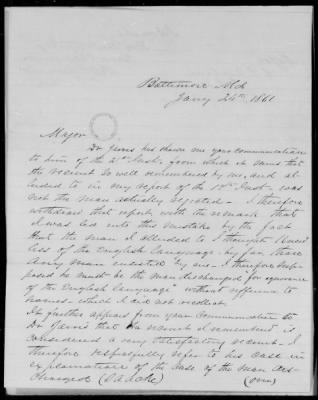 Baltimore Md
Jany 24th 1861
Major
Dr Jarvis has shown me your communication
to him of the 21st Inst, from which it seems that
the recruit so well remembered by me, and al-
luded to in my report of the 17th Inst, was
not the man actually rejected - I therefore
withdraw that report, with the remark that
I was led into this mistake by the fact
that the man I alluded to I thought knew
less of the English language, by far, than
any man enlisted by me - I therefore sup-
posed he must be the man discharged "for ignorance
of the English language" without reference to
names - which I did not recollect.
It further appears from your communication to
Dr Jarvis that the recruit I remembered is
considered a very satisfactory recruit - I
therefore respectfully refer to his case in
explanation of the case of the man dis-
charged
(over)